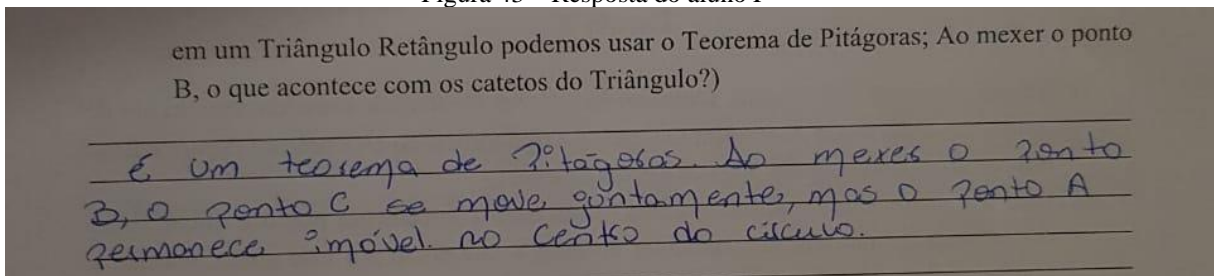 Figura 43 – Resposta do aluno F
em um Triângulo Retângulo podemos usar o Teorema de Pitágoras; Ao mexer o ponto
B, o que acontece com os catetos do Triângulo?)
é um teorema de Pitágoras. Ao mexer o ponto
B, o ponto C se move juntamente, mas o ponto A
permanece imóvel no centro do círculo.